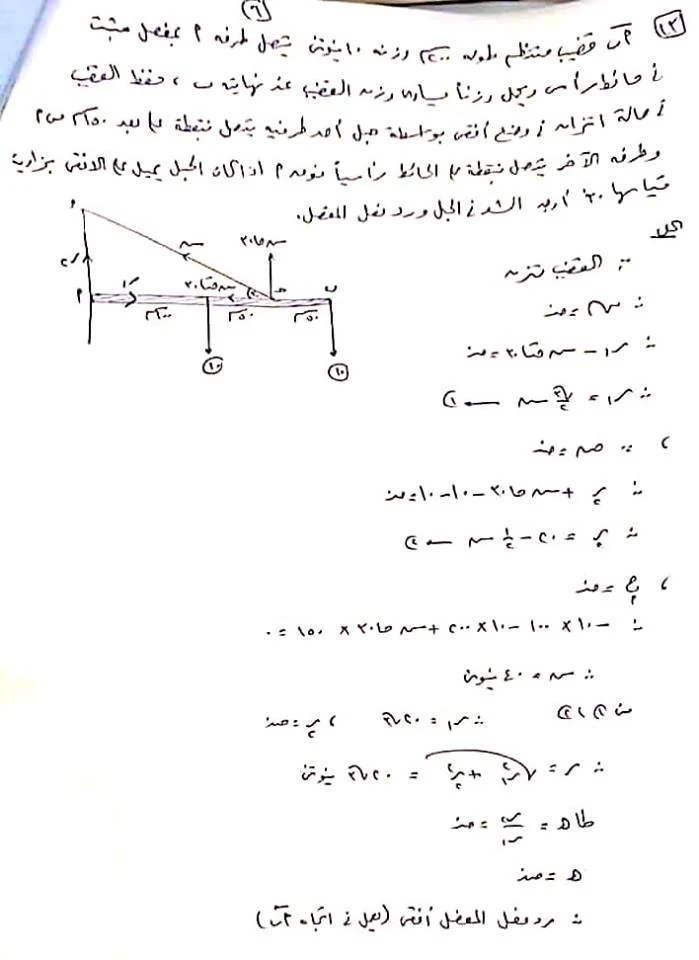 ٦
١٢ أب قضيب منتظم طوله ٢٠٠سم وزنه ١٠ نيوتن يتصل طرفه أ بمفصل مثبت
فى حائط رأسى ويحمل وزناً يساوى وزن القضيب عند نهايته ب ، حفظ القضيب
فى حالة اتزان فى وضع أفقى بواسطة حبل أحد طرفيه يتصل بنقطة على بعد ١٥٠سم من أ
وطرفه الآخر يتصل بنقطة على الحائط رأسياً فوق أ اذا كان الحبل يميل على الافقى بزاوية
قياسها ٣٠° أوجد الشد فى الحبل ورد فعل المفصل.
الحل
ش
ش حا٣٠
ش حتا٣٠
٣٠
ر٢
ر١
أ
حـ
ب
١٠٠سم
٥٠سم
٥٠سم
١٠
١٠
∵ القضيب متزن
∴ س = صفر
∴ ر١ - ش حتا٣٠ = صفر
∴ ر١ = √٣/٢ ش ← ١
، ∵ ص = صفر
∴ ر٢ + ش حا٣٠ - ١٠ - ١٠ = صفر
∴ ر٢ = ٢٠ - ١/٢ ش ← ٢
، ج أ = صفر
∴ -١٠ × ١٠٠ - ١٠ × ٢٠٠ + ش حا٣٠ × ١٥٠ = ٠
∴ ش = ٤٠ نيوتن
من ١ ، ٢ ∴ ر١ = ٢٠√٣ ، ر٢ = صفر
∴ ر = √(ر١² + ر٢²) = ٢٠√٣ نيوتن
طا هـ = ر٢/ر١ = صفر
هـ = صفر
∴ رد فعل المفصل أفقى (يعمل فى اتجاه أب)